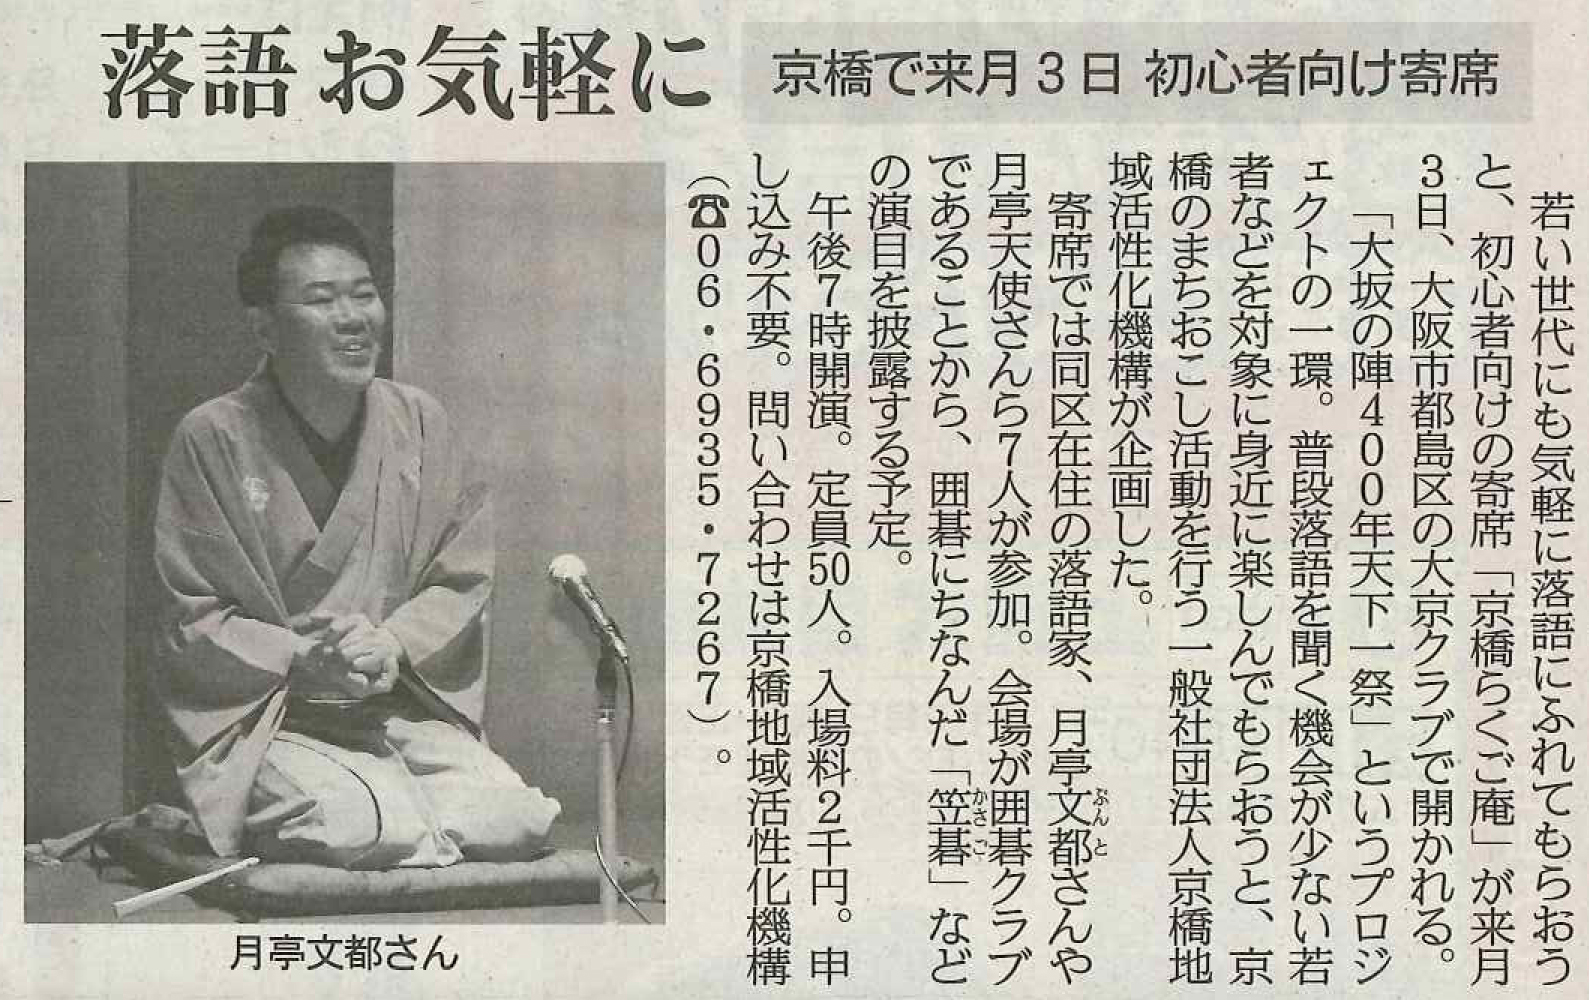 落語 お気軽に
京橋で来月3日 初心者向け寄席
若い世代にも気軽に落語にふれてもらおう
と、初心者向けの寄席「京橋らくご庵」が来月
3日、大阪市都島区の大京クラブで開かれる。
「大坂の陣400年天下一祭」というプロジ
ェクトの一環。普段落語を聞く機会が少ない若
者などを対象に身近に楽しんでもらおうと、京
橋のまちおこし活動を行う一般社団法人京橋地
域活性化機構が企画した。
寄席では同区在住の落語家、月亭文都さんや
ぶんと
月亭天使さんら7人が参加。会場が囲碁クラブ
であることから、囲碁にちなんだ「笠碁」など
かさご
の演目を披露する予定。
午後7時開演。定員50人。入場料2千円。申
し込み不要。問い合わせは京橋地域活性化機構
(☎06・6935・7267)。
月亭文都さん